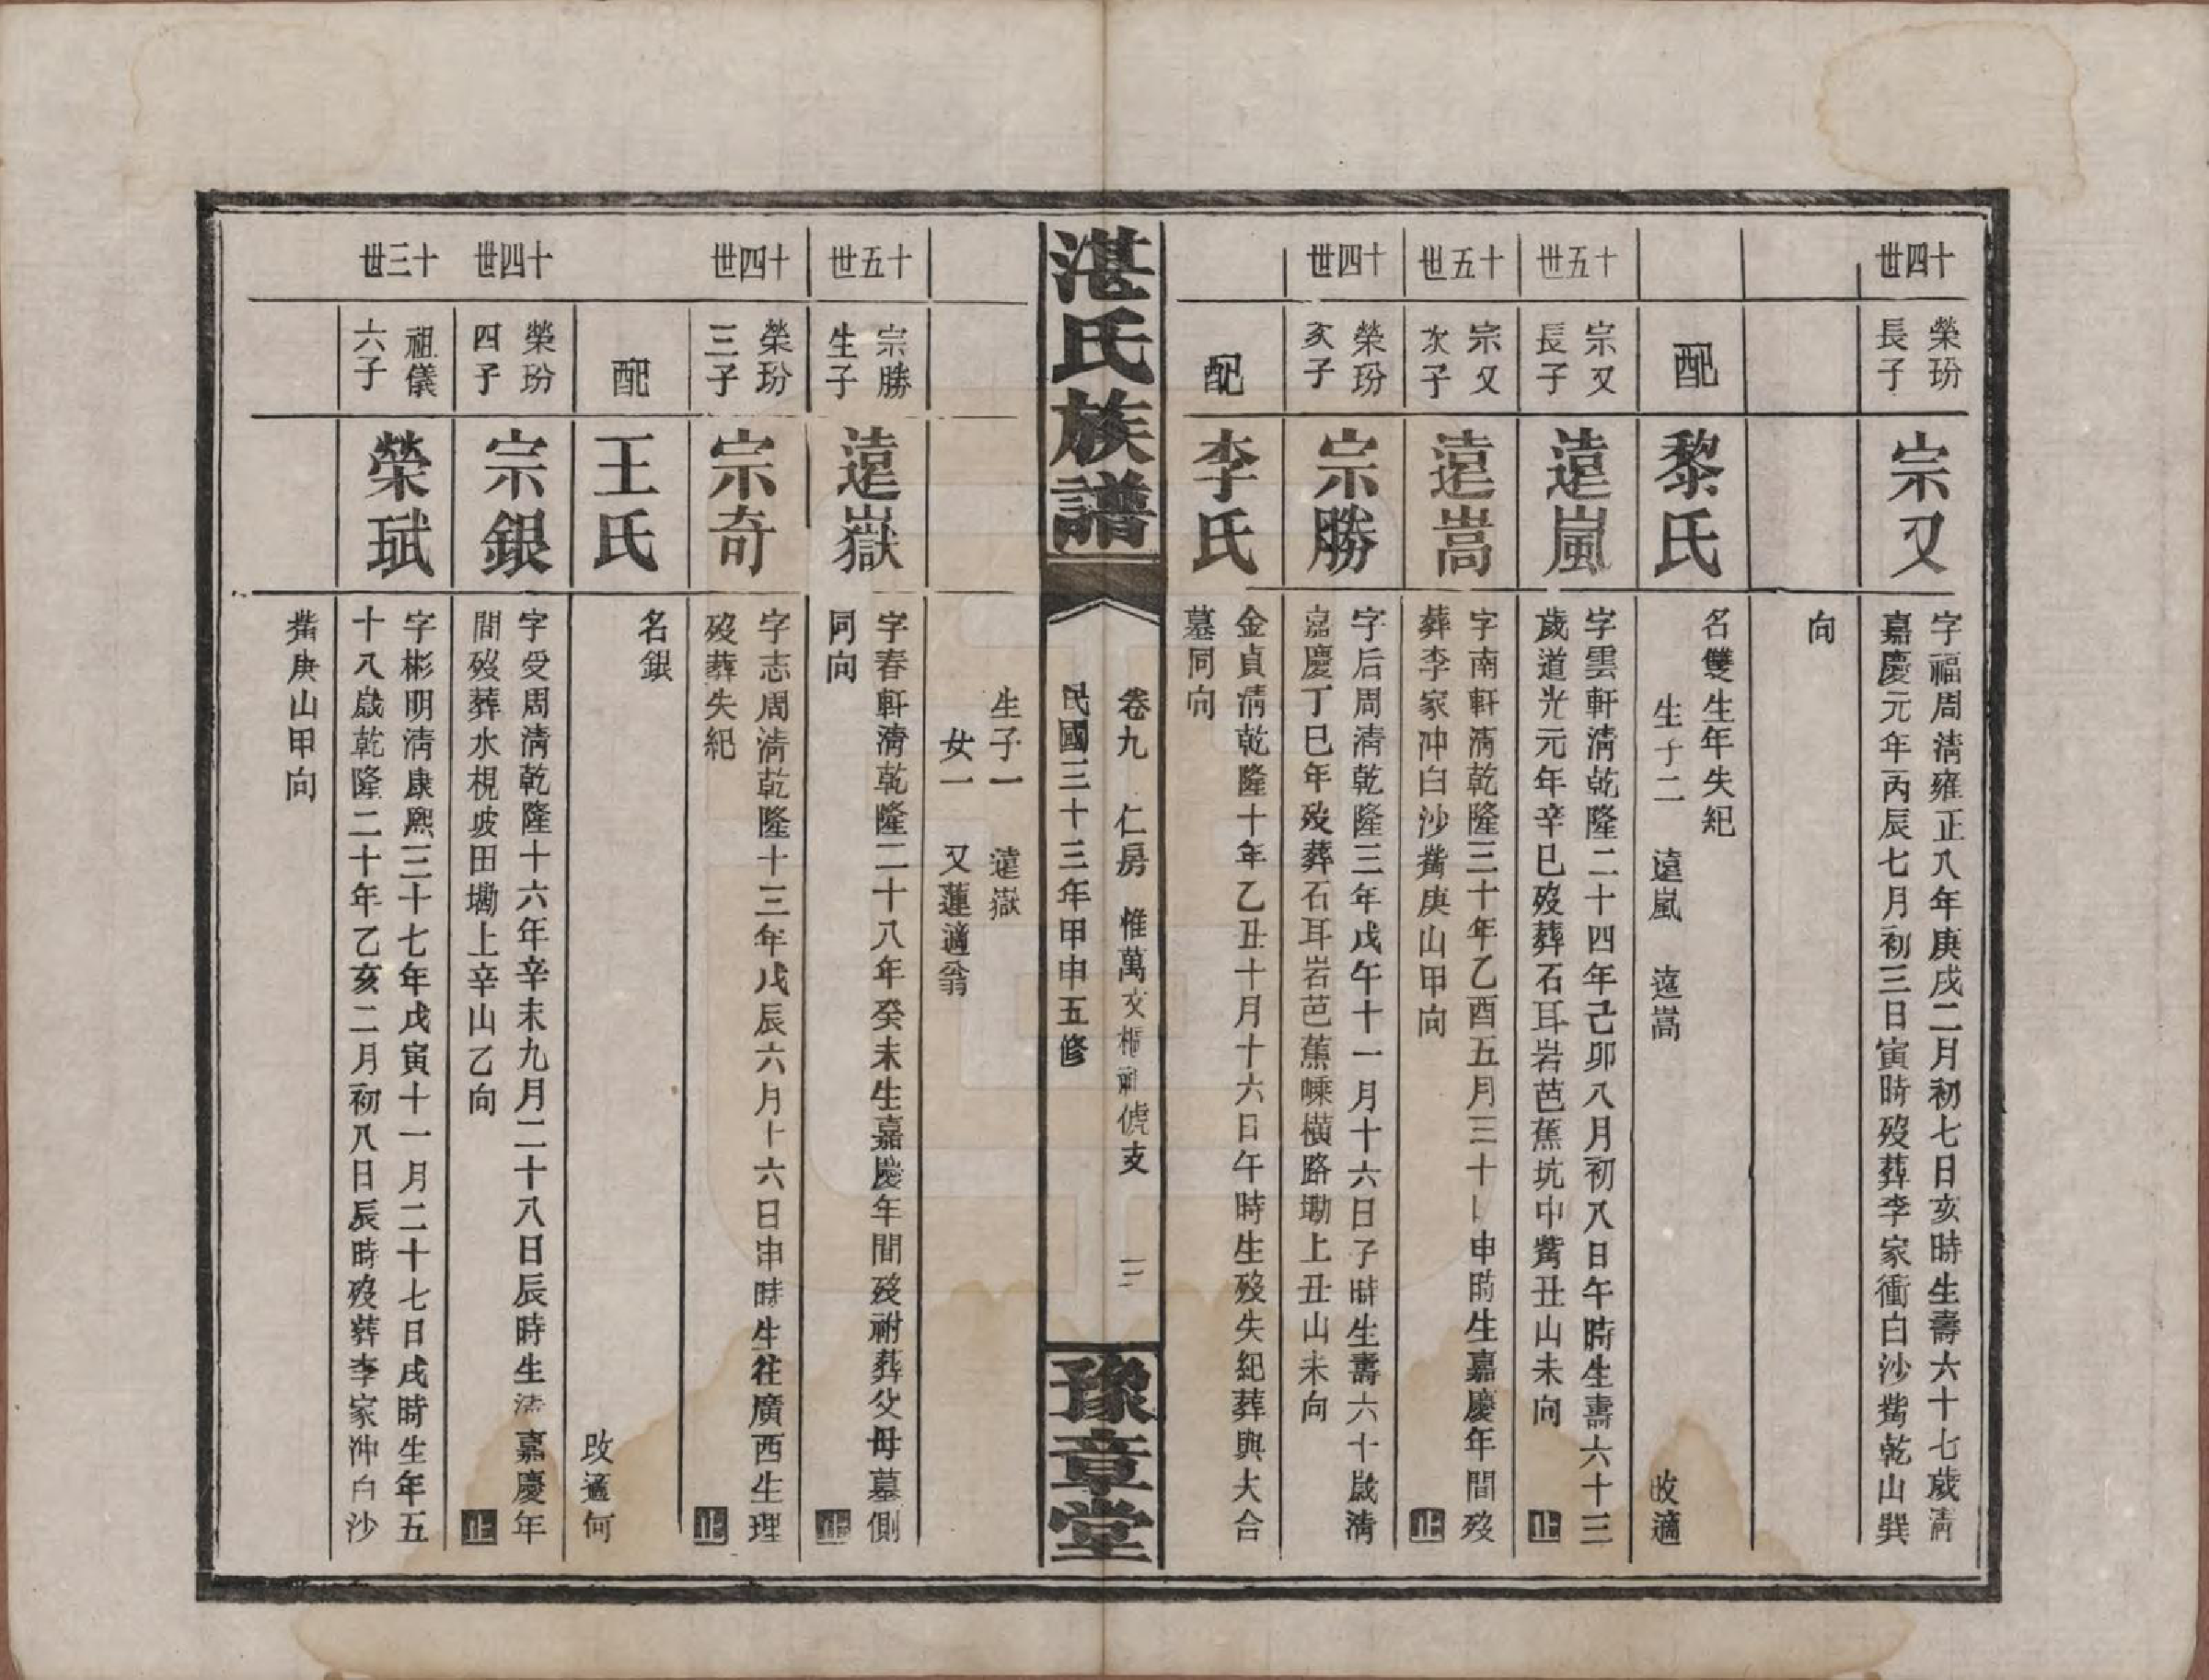 十四世
榮玢
長子
宗又
字福周清雍正八年庚戌二月初七日亥時生壽六十七歲清
嘉慶元年丙辰七月初三日寅時殁葬李家衝白沙觜乾山巽
向
配
黎氏
名雙生年失紀
生子二 遠嵐 遠嵩
改適
十五世
宗又
長子
遠嵐
字雲軒清乾隆二十四年己卯八月初八日午時生壽六十三
歲道光元年辛巳殁葬石耳岩芭蕉坑中觜丑山未向
止
十五世
宗又
次子
遠嵩
字南軒清乾隆三十年乙酉五月三十日申時生嘉慶年間殁
葬李家冲白沙觜庚山甲向
止
十四世
榮玢
次子
宗勝
字后周清乾隆三年戊午十一月十六日子時生壽六十歲清
嘉慶丁巳年殁葬石耳岩芭蕉嵊橫路墈上丑山未向
配
李氏
金貞清乾隆十年乙丑十月十六日午時生殁失紀葬與大合
墓同向
湛氏族譜
卷九 仁房 惟萬文 祖 支 三
民國三十三年甲申五修
豫章堂
生子一 遠嶽
女一 又蓮適翁
十五世
宗勝
生子
遠嶽
字春軒清乾隆二十八年癸未生嘉慶年間殁祔葬父母墓側
同向
止
十四世
榮玢
三子
宗奇
字志周清乾隆十三年戊辰六月十六日申時生往廣西生理
殁葬失紀
止
配
王氏
名銀
改適何
十四世
榮玢
四子
宗銀
字受周清乾隆十六年辛未九月二十八日辰時生清嘉慶年
間殁葬水梘坡田墈上辛山乙向
止
十三世
祖儀
六子
榮珷
字彬明清康熙三十七年戊寅十一月二十七日戌時生年五
十八歲乾隆二十年乙亥二月初八日辰時殁葬李家冲白沙
觜庚山甲向